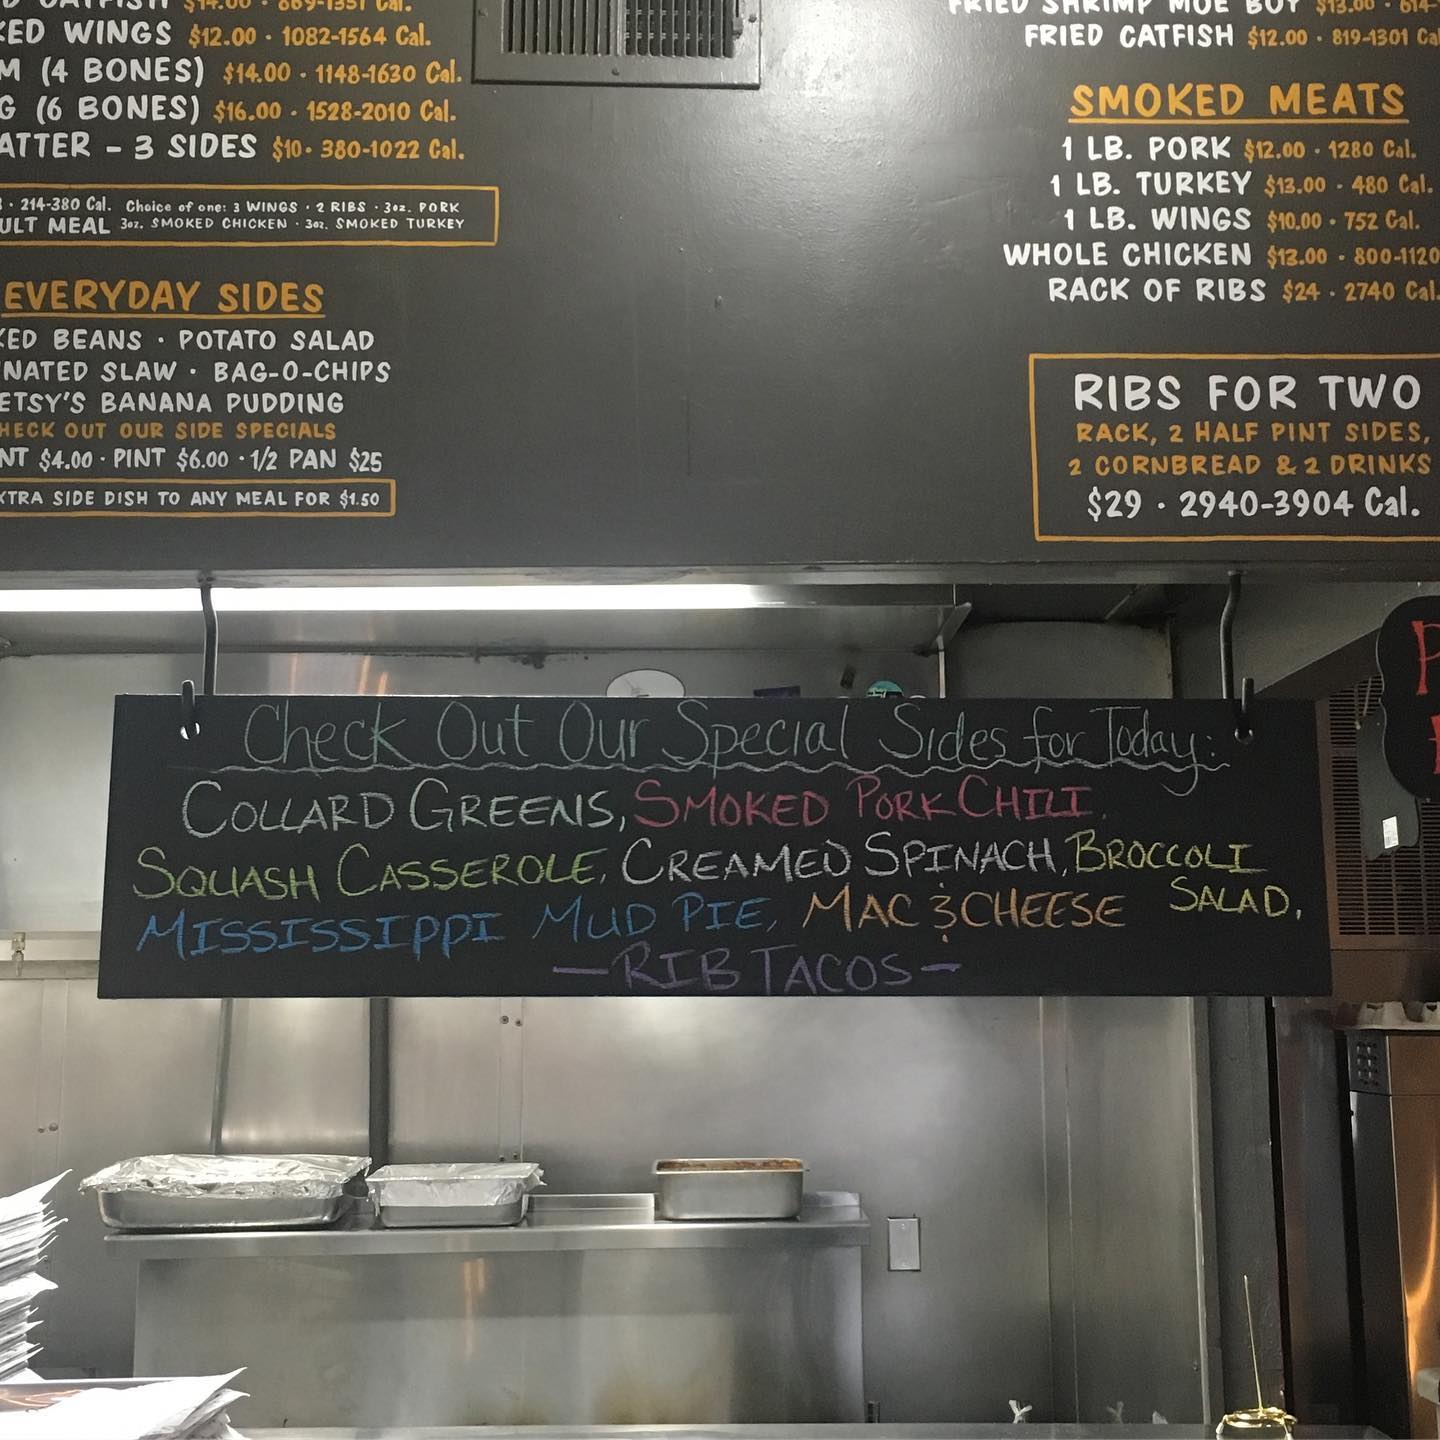 CATFISH $14.00 · 869-1351 Cal.
WINGS $12.00 · 1082-1564 Cal.
(4 BONES) $14.00 · 1148-1630 Cal.
(6 BONES) $16.00 · 1528-2010 Cal.
ATTER - 3 SIDES $10 · 380-1022 Cal.
· 214-380 Cal. Choice of one: 3 WINGS · 2 RIBS · 3oz. PORK
ULT MEAL 3oz. SMOKED CHICKEN · 3oz. SMOKED TURKEY
EVERYDAY SIDES
KED BEANS · POTATO SALAD
NATED SLAW · BAG-O-CHIPS
ETSY'S BANANA PUDDING
HECK OUT OUR SIDE SPECIALS
NT $4.00 · PINT $6.00 · 1/2 PAN $25
XTRA SIDE DISH TO ANY MEAL FOR $1.50
FRIED SHRIMP MOE BOY $13.00 · 614-
FRIED CATFISH $12.00 · 819-1301 Cal
SMOKED MEATS
1 LB. PORK $12.00 · 1280 Cal.
1 LB. TURKEY $13.00 · 480 Cal.
1 LB. WINGS $10.00 · 752 Cal.
WHOLE CHICKEN $13.00 · 800-1120
RACK OF RIBS $24 · 2740 Cal.
RIBS FOR TWO
RACK, 2 HALF PINT SIDES,
2 CORNBREAD & 2 DRINKS
$29 · 2940-3904 Cal.
Check Out Our Special Sides for Today:
COLLARD GREENS, SMOKED PORK CHILI,
SQUASH CASSEROLE, CREAMED SPINACH, BROCCOLI
SALAD,
MISSISSIPPI MUD PIE, MAC & CHEESE
— RIB TACOS —